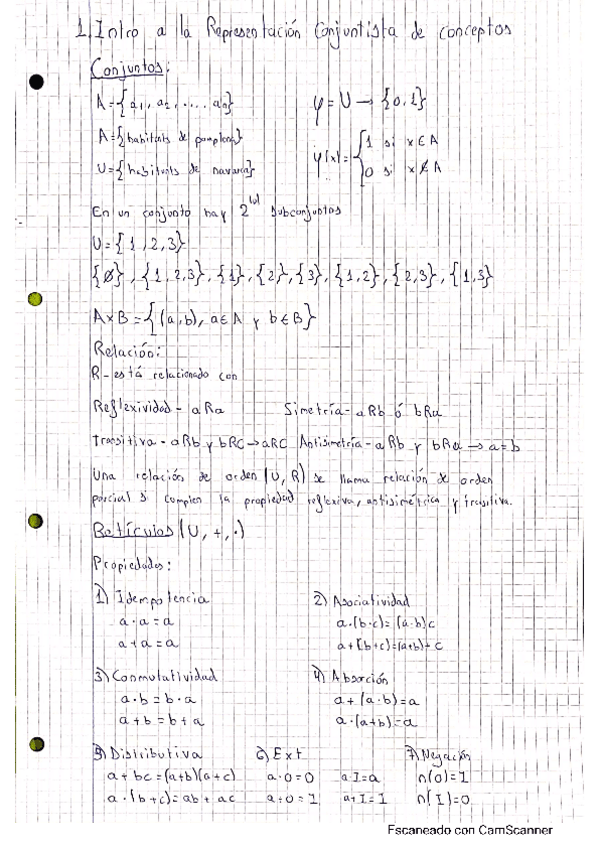 1. Intro a la Representación Conjuntista de conceptos
Conjuntos:
A={a₁, a₂, .... aₙ}
φ=U→{0,1}
A={habitants de pamplona}
φ(x)={1 si x∈A
0 si x∉A
U={habitants de navarra}
En un conjunto hay 2^|U| subconjuntos
U={1,2,3}
{ø}, {1,2,3}, {1}, {2}, {3}, {1,2}, {2,3}, {1,3}
A×B={(a,b), a∈A y b∈B}
Relación:
R-está relacionado con
Reflexividad - aRa Simetría- aRb ó bRa
Transitiva - aRb y bRC→aRC Antisimetría- aRb y bRa→a=b
Una relación de orden (U, R) se llama relación de orden
parcial si cumplen la propiedad reflexiva, antisimétrica y transitiva.
Retículos (U, +, ·)
Propiedades:
1) Idempotencia
a·a=a
a+a=a
2) Asociatividad
a·(b·c)=(a·b)c
a+(b+c)=(a+b)+c
3) Conmutatividad
a·b=b·a
a+b=b+a
4) Absorción
a+(a·b)=a
a·(a+b)=a
5) Distributiva
a+bc=(a+b)(a+c)
a·(b+c)=ab+ac
6) Ext
a·0=0 a·I=a
a+0=1 a+I=1
7) Negación
n(0)=I
n(I)=0
Escaneado con CamScanner